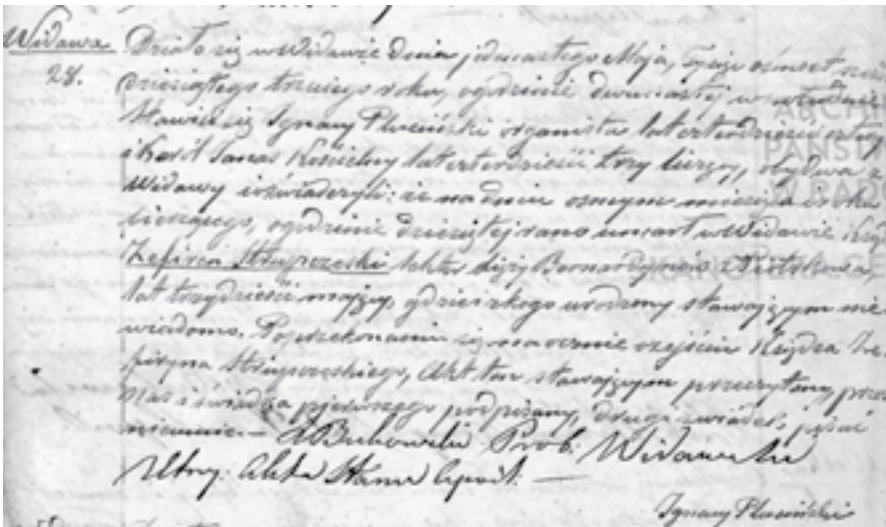 Widawa
28.
Działo się w Widawie dnia jedenastego Maja, Tysiąc ośmset sześć
dziesiątego trzeciego roku, o godzinie dwunastej w południe
Stawili się Ignacy Pluciński organista lat czterdzieści cztery
i Karol Tomas Kościelny lat czterdzieści trzy liczący, obydwa z
Widawy i oświadczyli: że na dniu osmym miesiąca i roku
bieżącego, o godzinie dziesiątej rano umarł w Widawie Xiądz
Zefirin Strupczeski lektor Bernardynów z Piotrkowa,
lat trzydzieści mający, gdzie i z kogo urodzony stawającym nie
wiadomo. Po przekonaniu się naocznie o zejściu Xiędza Ze-
firyna Strupczeskiego, Akt ten stawającym przeczytany, przez
nas i świadka pierwszego podpisany, drugi świadek pisać
nieumie. – Buchowski Prob. Widawski
Utrzy. Akta Stanu Cywil. —
Ignacy Pluciński